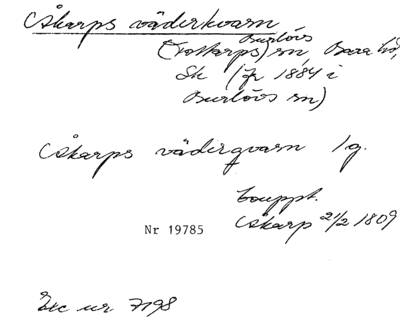 Åkarps väderkvarn
Burlövs
(Tottarps) sn Bara hd,
Sk (fr 1884 i
Burlövs sn)
Åkarps vädergvarn 1 g.
bouppt.
Åkarp 21/2 1809
Nr 19785
Exc nr 7198